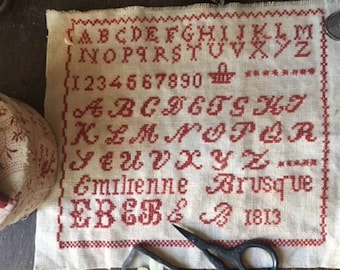 ABCDEFGHIJKLM
NOPQRSTUVXYZ
1234567890
ABCDEFGHIJ
KLMNOPQR
STUVXYZ
Emilienne Brusque
EB EB E B 1813